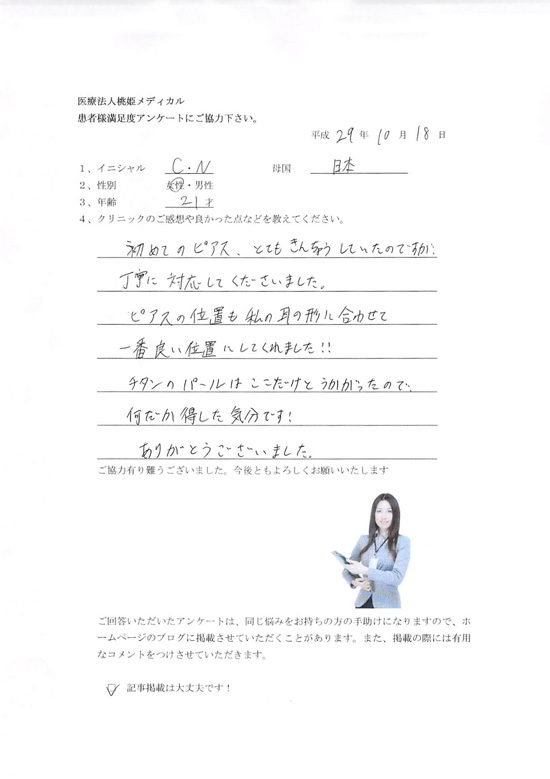 医療法人桃姫メディカル
患者様満足度アンケートにご協力下さい。
平成 29 年 10 月 18 日
1、イニシャル C・N 母国 日本
2、性別 女性・男性
3、年齢 21 才
4、クリニックのご感想や良かった点などを教えてください。
初めてのピアス、とてもきんちょうしていたのですが、
丁寧に対応してくださいました。
ピアスの位置も私の耳の形に合わせて
一番良い位置にしてくれました!!
チタンのパールはここだけとうかがったので、
何だか得した気分です!
ありがとうございました。
ご協力有り難うございました。今後ともよろしくお願いいたします
ご回答いただいたアンケートは、同じ悩みをお持ちの方の手助けになりますので、ホ
ームページのブログに掲載させていただくことがあります。また、掲載の際には有用
なコメントをつけさせていただきます。
記事掲載は大丈夫です！